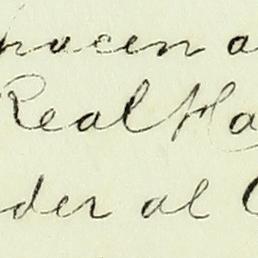 hacen a
Real Ha
der al